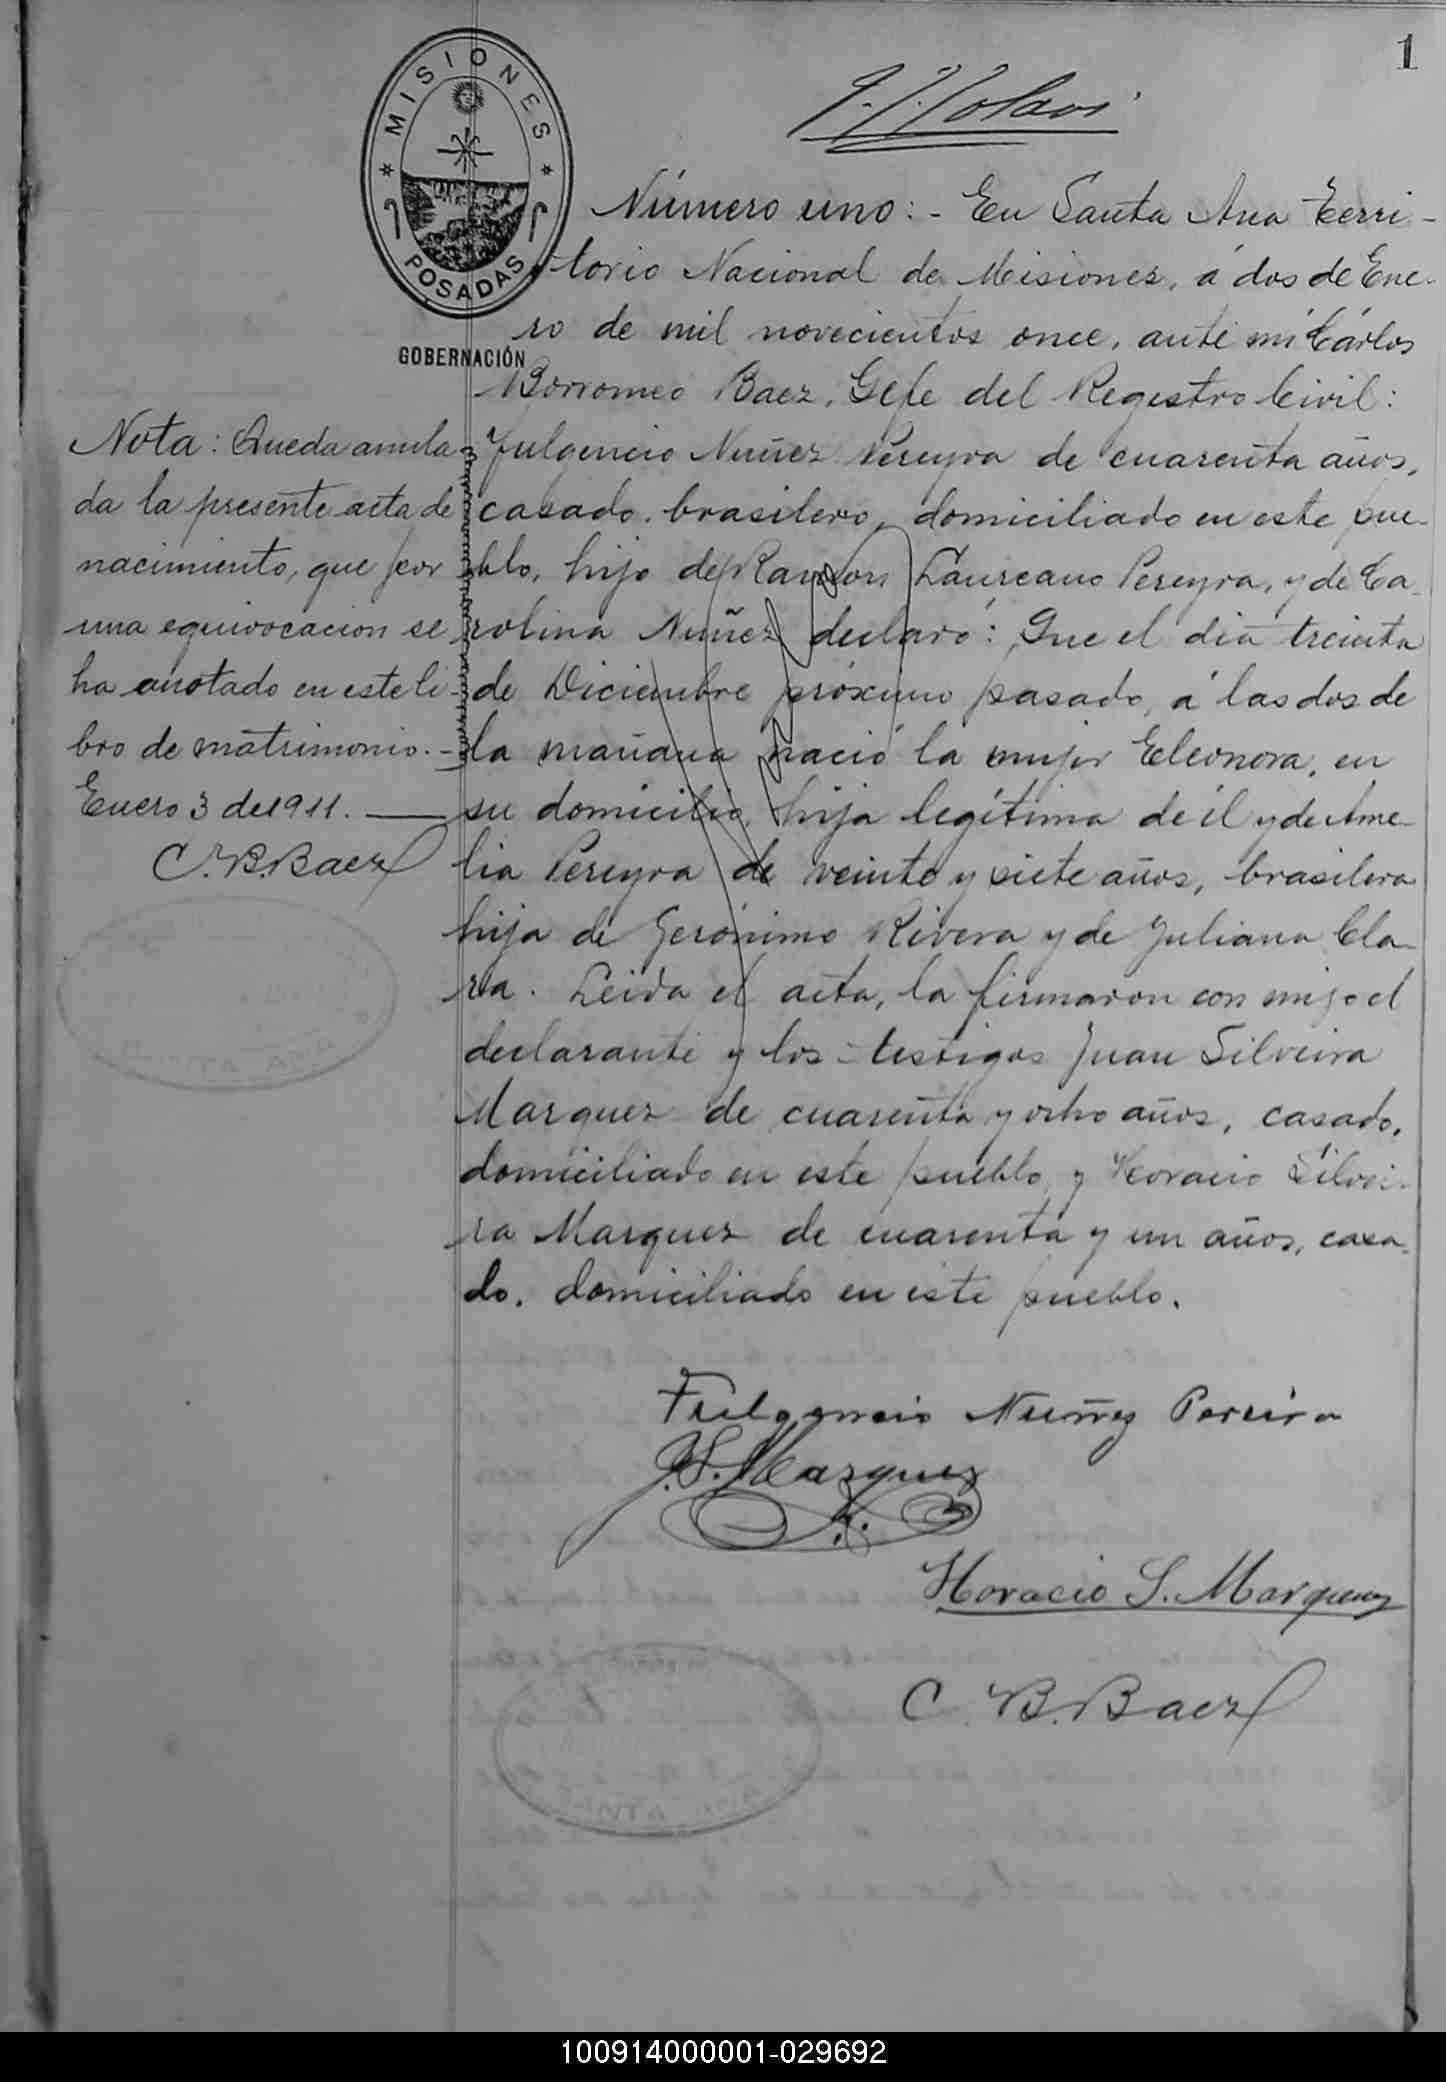 1
MISIONES
POSADAS
GOBERNACIÓN
Número uno:- En Santa Ana Terri-
torio Nacional de Misiones, á dos de Ene-
ro de mil novecientos once, ante mi Cárlos
Borromeo Baez, Gefe del Registro Civil:
Fulgencio Nuñez Pereyra de cuarenta años,
casado, brasilero, domiciliado en este pue-
blo, hijo de Ramon Laureano Pereyra, y de Ca-
rolina Nuñez declaró: Que el dia treinta
de Diciembre próximo pasado, á las dos de
la mañana nació la mujer Eleonora, en
su domicilio, hija legítima de él y de Ame-
lia Pereyra de veinte y siete años, brasilera
hija de Gerónimo Rivera y de Juliana Cla-
ra. Leida el acta, la firmaron con migo el
declarante y los testigos Juan Silveira
Marquez de cuarenta y ocho años, casado,
domiciliado en este pueblo y Horacio Silvei-
ra Marquez de cuarenta y un años, casa-
do, domiciliado en este pueblo.
Nota: Queda anula
da la presente acta de
nacimiento, que por
una equivocacion se
ha anotado en este li-
bro de matrimonio.-
Enero 3 de 1911.
C.B.Baez
Fulgencio Nuñez Pereira
J.S. Marquez
Horacio S. Marquez
C.B.Baez
100914000001-029692